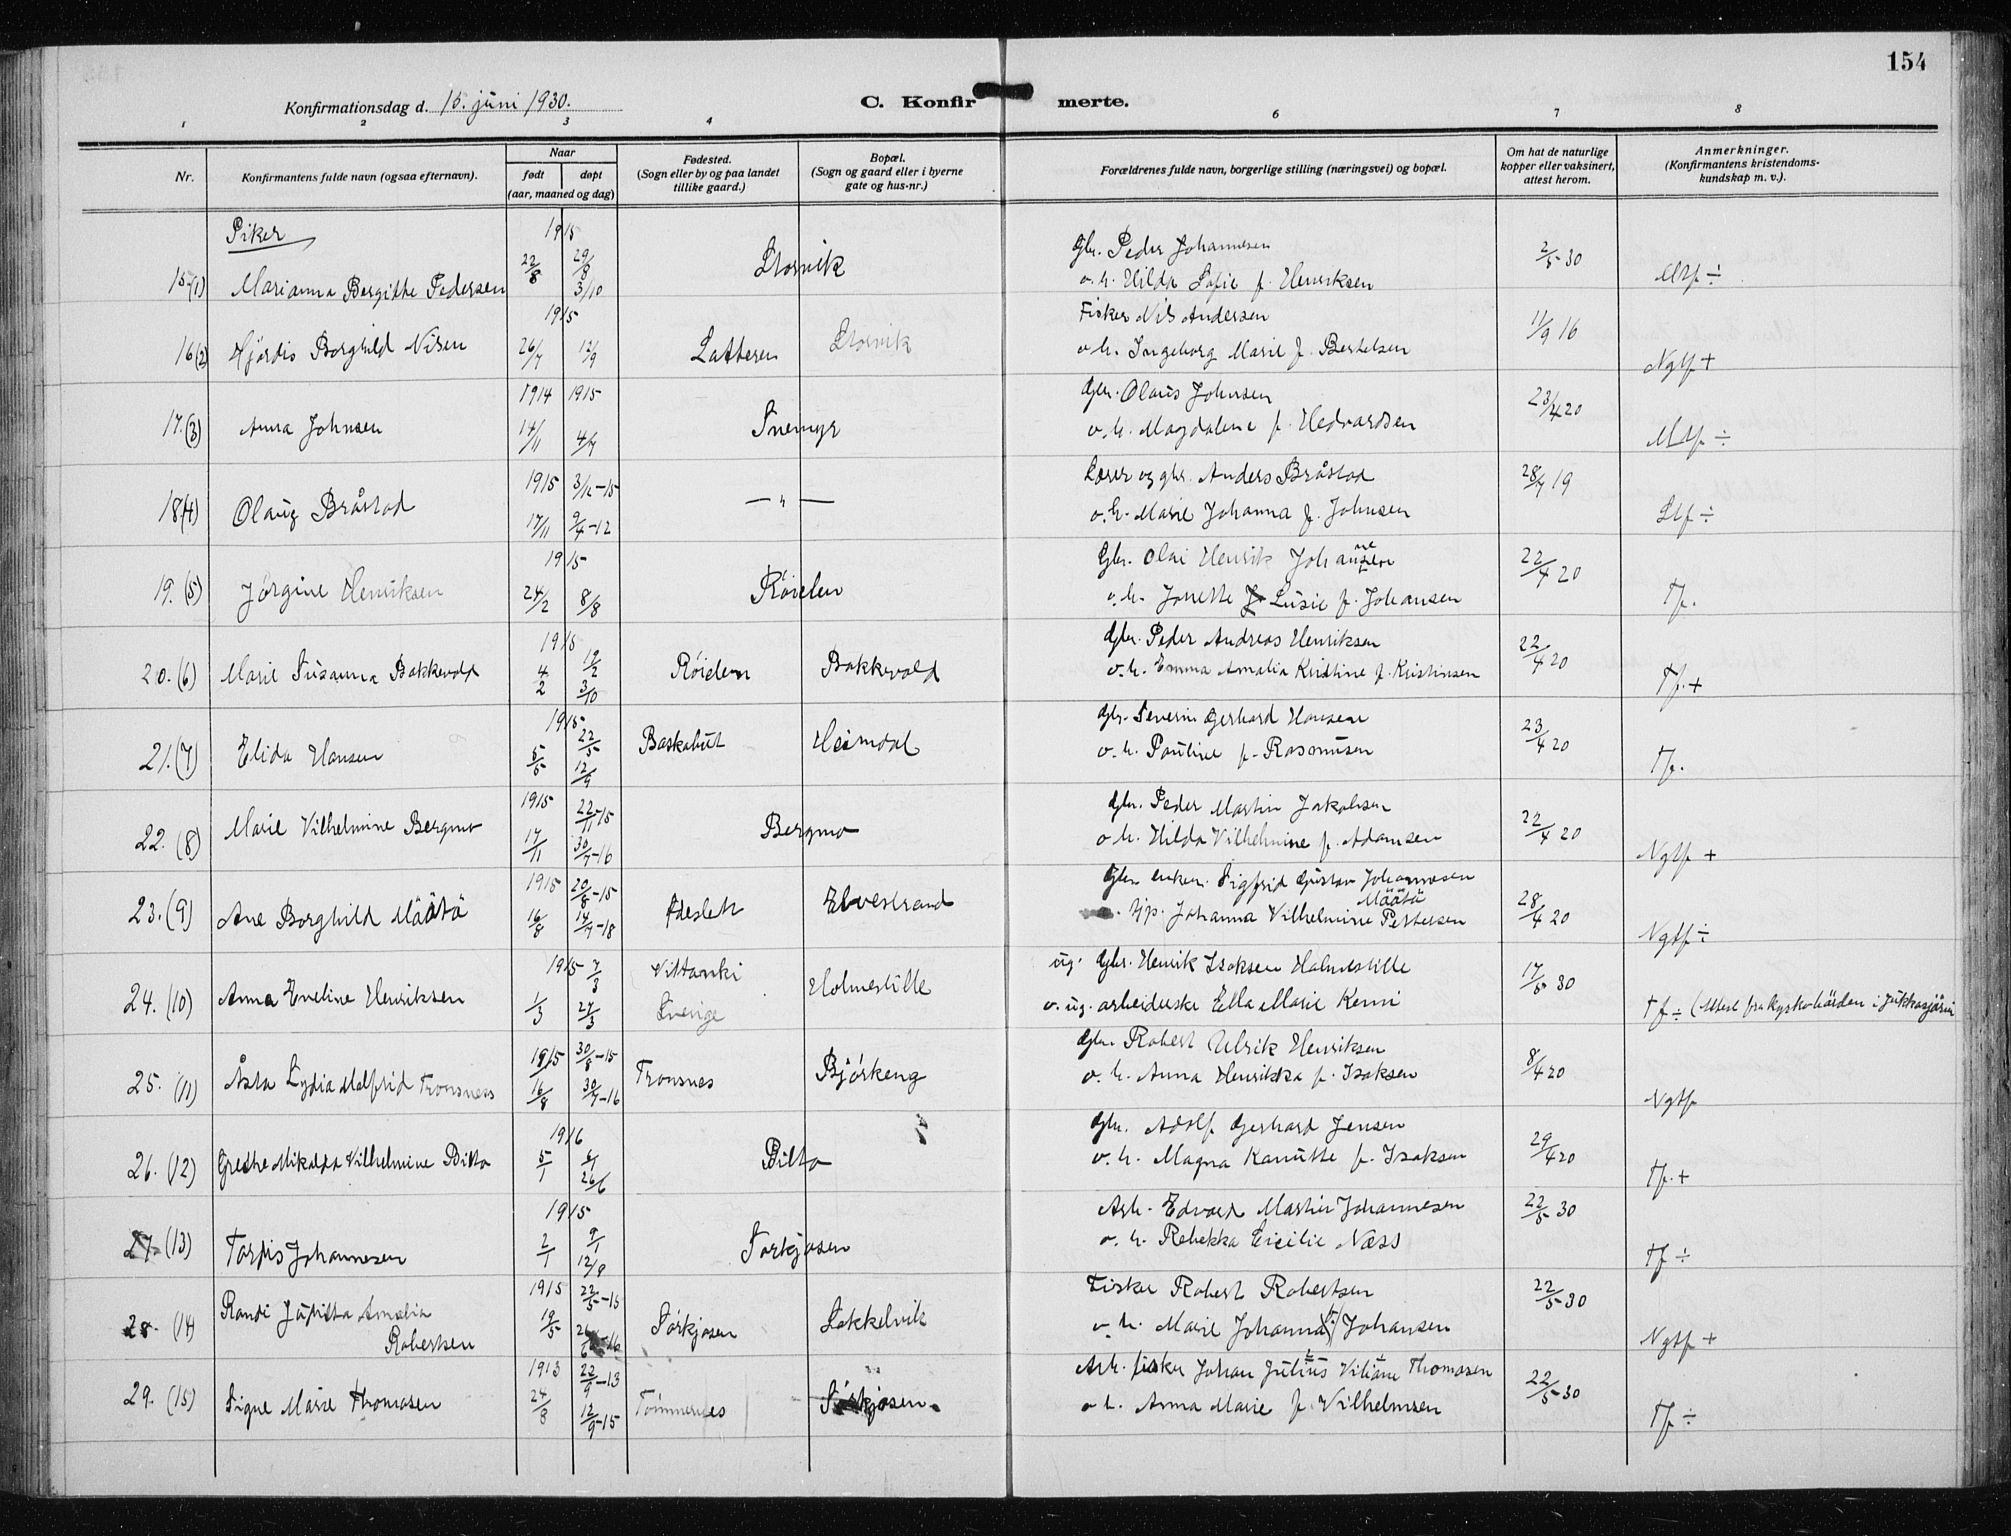 154
Konfirmationsdag d. 15. juni 1930.
C. Konfirmerte.
1 2 3 4 6 7 8
Nr.
Konfirmantens fulde navn (ogsaa efternavn).
Naar
født døpt
(aar, maaned og dag)
Fødested.
(Sogn eller by og paa landet
tillike gaard.)
Bopæl.
(Sogn og gaard eller i byerne
gate og hus-nr.)
Forældrenes fulde navn, borgerlige stilling (næringsvei) og bopæl.
Om hat de naturlige
kopper eller vaksinert,
attest herom.
Anmerkninger.
(Konfirmantens kristendoms-
kundskap m. v.).
Piker
1915
15.(1) Marianna Bergithe Pedersen 22/8 29/8 3/10 Storvik
Gbr. Peder Johannesen
o. h. Hilda Sofie f. Henriksen
2/5 30
Mtf ÷
1915
16(2) Hjørdis Borghild Nilsen 26/7 12/9 Latteren Storvik
Fisker Nils Andersen
o h. Ingeborg Marie f. Bertelsen
11/9 16
Ngtf +
1914 1915
17.(3) Anna Johnsen 14/11 4/7 Snemyr
Gbr. Olaus Johnsen
o. h. Magdalene f. Hedvardsen
23/4 20
Mtf ÷
1915 3/12-15
18(4) Olaug Bråstad 17/11 9/4-12 — „ —
Lærer og gbr. Anders Bråstad
o. h. Marie Johanna f. Johnsen
28/7 19
Stf ÷
1915
19. (5) Jørgine Henriksen 24/2 8/8 Røielen
Gbr. Olai Henrik Johansen
o. h. Jonette J. Lusie f. Johansen
22/4 20
Tf.
1915
20. (6) Marie Susanna Bakkevold 4/2 12/2 3/10 Røielen Bakkevold
Gbr. Peder Andreas Henriksen
o. h. Emma Amalia Kristine f. Kristinsen
22/4 20
Tf. +
1915
21. (7) Elida Hansen 5/5 22/5 12/9 Baskabut Heimdal
Gbr. Severin Gerhard Hansen
o. h. Pauline f. Rasmusen
23/4 20
Tf.
1915 22/11-15
22. (8) Marie Vilhelmine Bergmo 17/11 30/7-16 Bergmo
Gbr. Peder Martin Jakobsen
o h. Hilda Vilhelmine f. Adamsen
22/4 20
Ngtf +
1915 20/8-15
23. (9) Ane Borghild Määtä 16/8 14/7-18 Fleslett Elvestrand
Gbr enkem. Sigfrid Gustav Johannesen
Määtä
Hjp. Johanna Vilhelmine Pettersen
28/4 20
Ngtf ÷
1915 7/3
24. (10) Anna Eveline Henriksen 1/3 27/3 Vittanki Sverige Holmestille
ug. Gbr. Henrik Isaksen Holmestille
o. ug. arbeiderske Ella Marie Kenni
17/5 30
Tf ÷ (Attest fra Kyrkohärden i Jukkasjärvi
1915 30/8-15
25. (11) Åsta Lydia Malfrid Tronsnes 16/8 30/7-16 Tronsnes Bjørkeng
Gbr. Robert Ulrik Henriksen
o. h. Anna Henrikka f. Isaksen
8/4 20
Ngtf
1916
26. (12) Grethe Mikalda Vilhelmine Bilto 5/1 6/1 26/6 Bilto
Gbr. Adolf Gerhard Jensen
o. h. Magna Kanutte f. Isaksen
29/4 20
Tf. +
1915
27. (13) Tordis Johannesen 2/1 9/1 12/9 Sørkjosen
Arb. Edvard Martin Johannesen
o. h. Rebekka Cicilie Næss
22/5 30
Tf ÷
1915 22/5-15
28. (14) Randi Juditta Amalia
Robertsen 19/5 Sørkjosen Sakkelvik
Fisker Robert Robertsen
o h. Marie Johanna f. Johansen
22/5 30
Ngtf +
1913 22/9-13
29. (15) Signe Marie Thomasen 24/8 12/9-15 Tømmernes Sørkjosen.
Arb. fisker Johan Julius Viliam Thomasen
o h. Anna Marie f. Vilhelmsen
22/5 30
Tf ÷